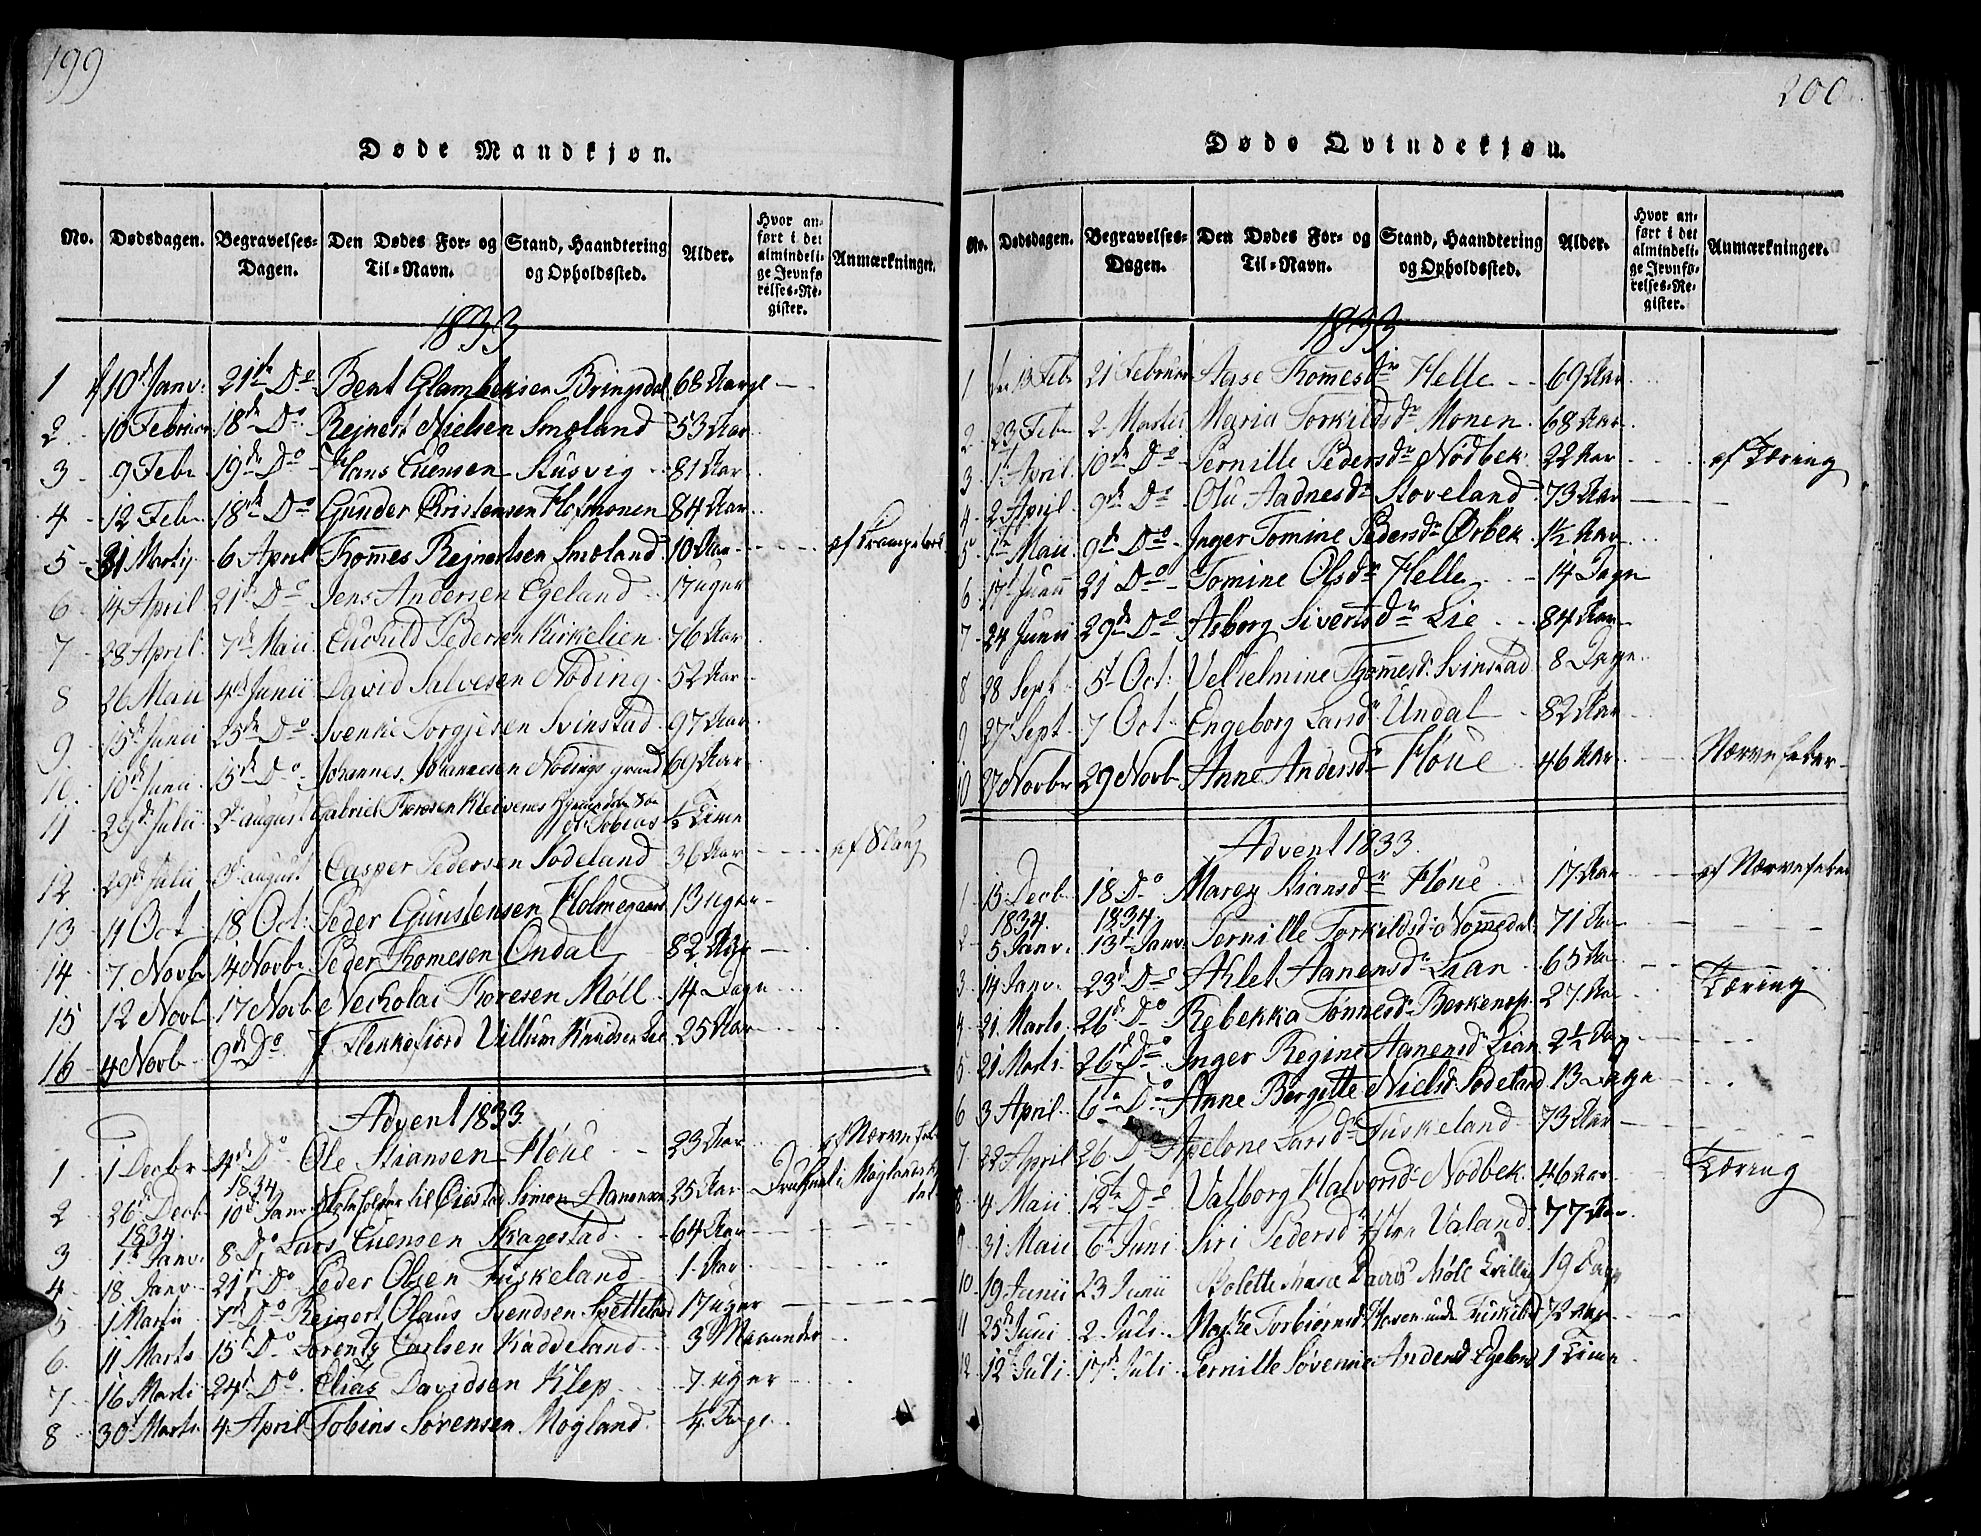 199
Døde Mandkjøn.
No. Dødsdagen. Begravelses-Dagen. Den Dødes For- og Til-Navn. Stand, Haandtering og Opholdssted. Alder. Hvor anført i det almindelige Jevnførelses-Register. Anmærkninger.
1833
1 10 Janv: 21de Do Bent Glambeksen Bringsdal 68 Aar
2 10 Februar 18de Do Rejnert Nielsen Smæland 53 Aar
3 9 Febr 19de Do Hans Evensen Kusvig 81 Aar
4 12 Febr 18de Do Gunder Kristensen Holmonen 84 Aar
5 31 Martij 6 April Thomes Rejnertsen Smæland 10 Aar af Krampe
6 14 April 21de Do Jens Andersen Egeland 17 uger
7 28 April 7de Maii Pedersen Kirkelien 76 Aar
8 26 Maii 4de Junii David Salvesen Nøding 52 Aar
9 15de Junii 25de Do Svenke Torgjusen Svinstad 97 Aar
10 10de Junii 15de Do Johannes Johannesen Nødings grund 69 Aar
11 29de Julii 2de august Gabriel Thoresen Kleivenes
af Tobias ½ Time
12 29de Julii 3de august Casper Pedersen Sodeland 36 Aar af Slag
13 11 Oct 18 Oct: Peder Gunstensen Holmegaard 13 uger
14 7. Novbr 14 Novbr Peder Thomesen Ondal 82 Aar
15 12 Novb 17 Novb Neckolai Thoresen Möll 14 Dage
16 4 Novb 9de Do I Flekkefiord Villum Knudsen Lie 25 Aar
Advent 1833.
1 1 Decbr 4de Do Ole Stiansen Høue 23 Aar af Nærvefeb
1834
2 26 Decb 10de Janv til Simon Aanensen 25 Aar Druknet i
1834
3 1st Janv. 8 Do Lars Evensen Skagestad 64 Aar
4 18 Janv 21de Do Peder Olsen Tuskeland 1 Aar
5 1 Martii 7de Do Rejnert Olaus Svendsen 17 uger
6. 11 Marts 15de Do Lorentz Carlsen Kaddeland 3 Maaneder
7 16 Marti 24de Do Elias Davidsen Klep 7 uger
8 30 Marts 4 April Tobias Sørensen Mogland ¼ Dage
200
Døde Qvindekjøn.
No. Dødsdagen. Begravelses-Dagen. Den Dødes For- og Til-Navn. Stand, Haandtering og Opholdssted. Alder. Hvor anført i det almindelige Jevnførelses-Register. Anmærkninger.
1833
1 den 13 Febr 21 Februar Aase Thomesdr Helle 69 Aar
2 23 Febr 2 Martii Maria Torkildsdr Monen 68 Aar
3 1 April 10de Do Pernille Pedersdr Nödbek 22 Aar af Tæring
4 2 April 9de Do Olu Aadnesdr Stoveland 73 Aar
5 1te Maii 9de Do Inger Tomine Pedersdr Ørbek 1½ Aar
6 17 Junii 21 Do Tomine Olsdr Helle 14 Dage
7 24 Junii 29de Do Asborg Sivertsdr Lie 84 Aar
8 28 Sept 5t Oct: Velhelmine Thomesd. Svinstad 8 Dage
9 27 Sept 7 Oct Engeborg Larsdr Undal 82 Aar
10 27 Novbr 29 Novb Anne Andersdr Høue 46 Aar Nærvefeber
Advent 1833.
1 15 Decb 18 Do Maren Stiansdr Høue 17 Aar af Nærvefeber
1834 1834
2 5 Janv. 13de Janv. Pernille Torkildsd. Nommedal 71 Aar
3 14 Janv. 23de Do Aslet Aanensdr Lian 65 Aar
4 21 Marts 26de Do Rebekka Tønnesd. Berkenes 27 Aar Tæring
5 21 Marts 26de Do Inger Regine Aanensd Lian 2½ Aar
6 3 April 6te Do Anne Bergitte Nielsd Sodeland 13 Dage
7 22 April 26 Do Apelone Larsdr Tuskeland 73 Aar
8 4 Maii 12te Do Valborg Halvorsd. Nodbek 46 Aar Tæring
9 31 Maii 6 Juni Siri Pedersdr Valand 77 Aar
10 19 Junii 23 Junii Kolette Marie Davids Möll Tvilling 19 Dage
11 25de Juni 2 Juli Torbiørnsd. Haven 72 Aar
12 12 Juli 17de Juli Pernille Andersd Egeland 1 Time